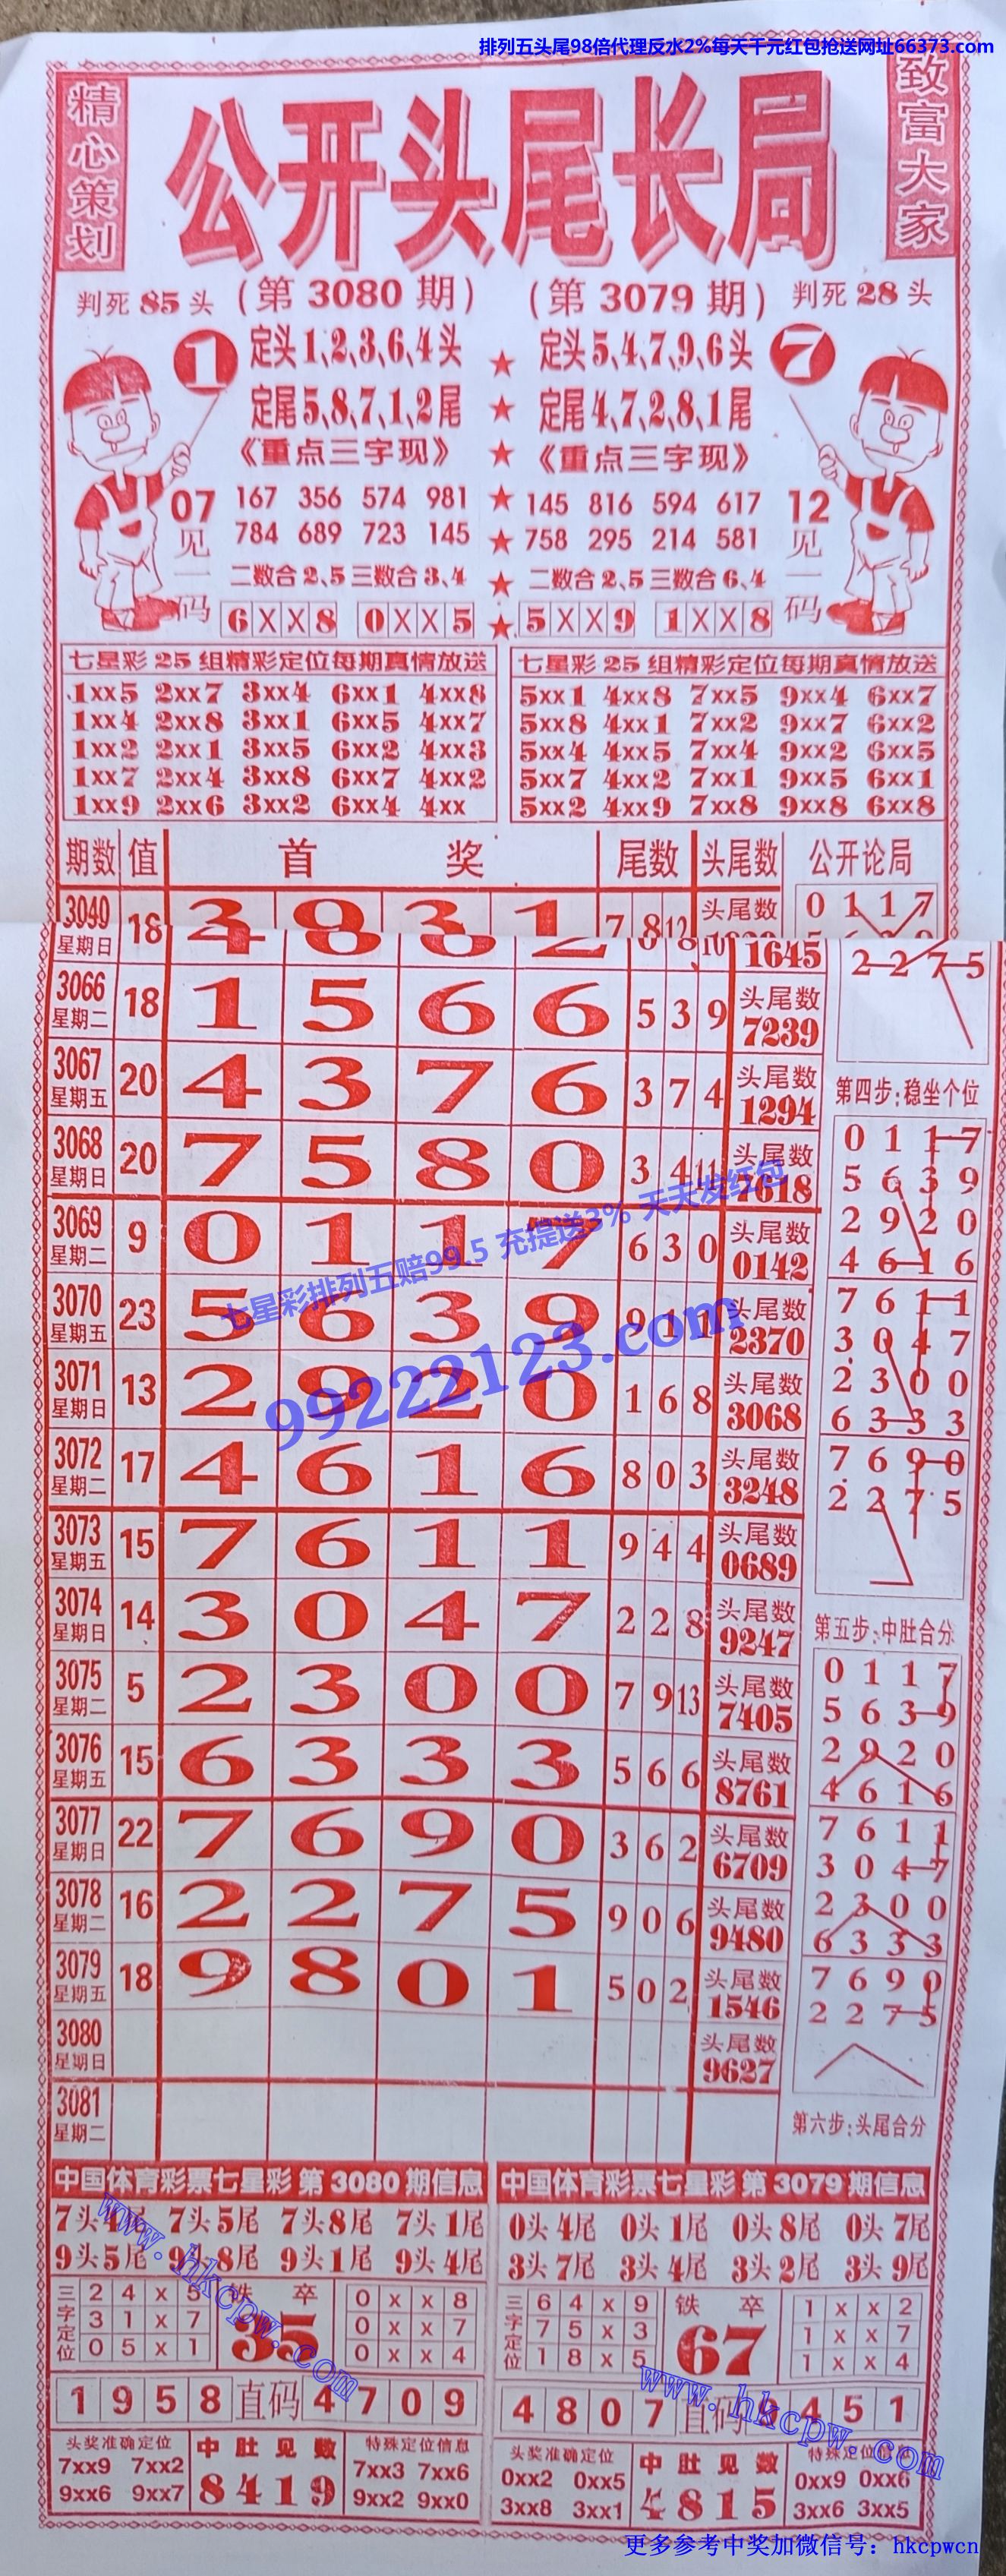 排列五头尾98倍代理反水2%每天千元红包抢送网址66373.com
精心策划
公开头尾长局
致富大家
判死85头 (第3080期) (第3079期) 判死28头
1 定头1,2,3,6,4头 ★ 定头5,4,7,9,6头 7
定尾5,8,7,1,2尾 ★ 定尾4,7,2,8,1尾
《重点三字现》 ★ 《重点三字现》
07见一码 167 356 574 981 ★ 145 816 594 617 12见一码
784 689 723 145 ★ 758 295 214 581
二数合2、5三数合3、4 ★ 二数合2、5三数合6、4
6XX8 0XX5 ★ 5XX9 1XX8
七星彩25组精彩定位每期真情放送 七星彩25组精彩定位每期真情放送
1xx5 2xx7 3xx4 6xx1 4xx8 5xx1 4xx8 7xx5 9xx4 6xx7
1xx4 2xx8 3xx1 6xx5 4xx7 5xx8 4xx1 7xx2 9xx7 6xx2
1xx2 2xx1 3xx5 6xx2 4xx3 5xx4 4xx5 7xx4 9xx2 6xx5
1xx7 2xx4 3xx8 6xx7 4xx2 5xx7 4xx2 7xx1 9xx5 6xx1
1xx9 2xx6 3xx2 6xx4 4xx 5xx2 4xx9 7xx8 9xx8 6xx8
期数 值 首奖 尾数 头尾数 公开论局
3040 星期日 16 7 8 12 头尾数 0 1 1 7
1645 2 2 7 5
3066 星期二 18 1 5 6 6 5 3 9 头尾数 7239
3067 星期五 20 4 3 7 6 3 7 4 头尾数 1294
3068 星期日 20 7 5 8 0 3 4 11 头尾数 7618
3069 星期二 9 0 1 1 7 6 3 0 头尾数 0142
3070 星期五 23 5 6 3 9 9 1 1 头尾数 2370
3071 星期日 13 2 9 2 0 1 6 8 头尾数 3068
3072 星期二 17 4 6 1 6 8 0 3 头尾数 3248
3073 星期五 15 7 6 1 1 9 4 4 头尾数 0689
3074 星期日 14 3 0 4 7 2 2 8 头尾数 9247
3075 星期二 5 2 3 0 0 7 9 13 头尾数 7405
3076 星期五 15 6 3 3 3 5 6 6 头尾数 8761
3077 星期日 22 7 6 9 0 3 6 2 头尾数 6709
3078 星期二 16 2 2 7 5 9 0 6 头尾数 9480
3079 星期五 18 9 8 0 1 5 0 2 头尾数 1546
3080 星期日 头尾数 9627
3081 星期二
第四步:稳坐个位
0 1 1 7
5 6 3 9
2 9 2 0
4 6 1 6
7 6 1 1
3 0 4 7
2 3 0 0
6 3 3 3
7 6 9 0
2 2 7 5
第五步:中肚合分
0 1 1 7
5 6 3 9
2 9 2 0
4 6 1 6
7 6 1 1
3 0 4 7
2 3 0 0
6 3 3 3
7 6 9 0
2 2 7 5
第六步:头尾合分
七星彩排列五赔99.5 充提送3% 天天发红包
99222123.com
中国体育彩票七星彩 第3080期信息 中国体育彩票七星彩 第3079期信息
7头4尾 7头5尾 7头8尾 7头1尾 0头4尾 0头1尾 0头8尾 0头7尾
9头5尾 9头8尾 9头1尾 9头4尾 3头7尾 3头4尾 3头2尾 3头9尾
三字定位 2 4 x 5 铁卒 0 x x 8 三字定位 6 4 x 9 铁卒 1 x x 2
3 1 x 7 35 0 x x 7 7 5 x 3 67 1 x x 7
0 5 x 1 0 x x 4 1 8 x 5 1 x x 4
1 9 5 8 直码 4 7 0 9 4 8 0 7 直码 4 5 1
头奖准确定位 中肚见数 特殊定位信息 头奖准确定位 中肚见数 特殊定位信息
7xx9 7xx2 8419 7xx3 7xx6 0xx2 0xx5 4815 0xx9 0xx6
9xx6 9xx7 9xx2 9xx0 3xx8 3xx1 3xx6 3xx5
www.hkcpw.com
www.hkcpw.com
更多参考中奖加微信号：hkcpwcn